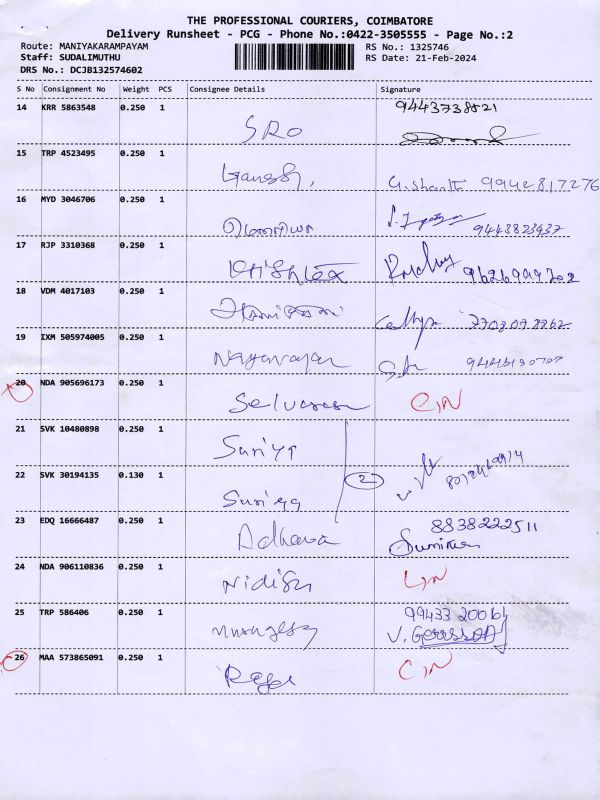 THE PROFESSIONAL COURIERS, COIMBATORE
Delivery Runsheet - PCG - Phone No.:0422-3505555 - Page No.:2
Route: MANIYAKARAMPAYAM RS No.: 1325746
Staff: SUDALIMUTHU RS Date: 21-Feb-2024
DRS No.: DCJB132574602
S No Consignment No Weight PCS Consignee Details Signature
14 KRR 5863548 0.250 1 SRO 9443738521
15 TRP 4523495 0.250 1 Ganesh, G. Shanti 9942817276
16 MYD 3046706 0.250 1 9443823937
17 RJP 3310368 0.250 1 9626999702
18 VDM 4017103 0.250 1
19 IXM 505974005 0.250 1 Narayanan
20 NDA 905696173 0.250 1 Selvaraj
21 SVK 10480898 0.250 1 Suriya
22 SVK 30194135 0.130 1 Suriya 2
23 EDQ 16666487 0.250 1 Adhava 8838222511
24 NDA 906110836 0.250 1 Nidish
25 TRP 586406 0.250 1 Murugesh 99433 20061
26 MAA 573865091 0.250 1 Raja